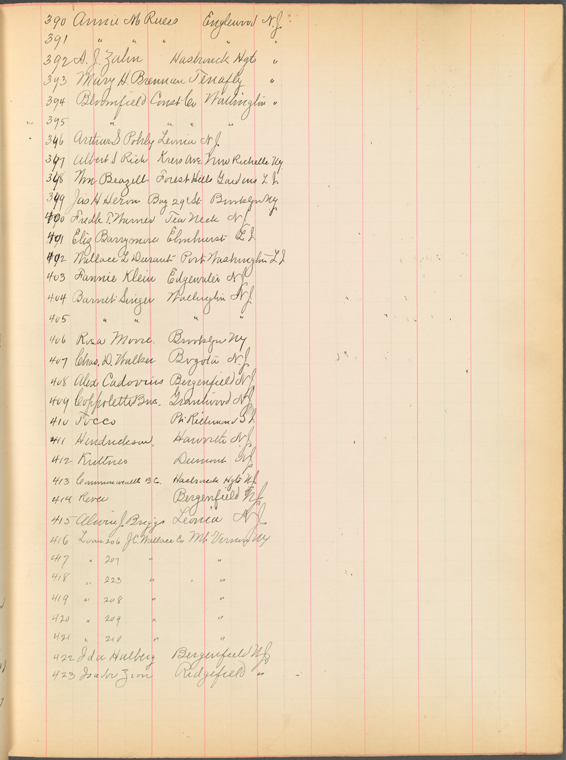 390 Annie M Ruess Englewood N.J.
391 " " " " "
392 A. J. Zahn Hasbrouck Hgts "
393 Mary H. Brennan Tenafly "
394 Bloomfield Const Co Wallington "
395 " " " "
396 Arthur S Pohly Leonia N.J.
397 Albert S Rich Ave New Rochelle Ny
398 Wm Beazell Forest Hills Gardens L.I.
399 Jas H Heron Bay 29 St Brooklyn Ny
400 Fredk T. Warner Tea Neck N.J.
401 Eliz Barrymore Elmhurst L.I.
402 Wallace L Durant Port Washington L.I
403 Fannie Klein Edgewater N.J.
404 Barnet Singer Wallington N.J.
405 " " "
406 Rosa Moore. Brooklyn Ny
407 Chas. D. Walker Bogota N.J.
408 Alex Cadovius Bergenfield N.J.
409 Coppoletti Bros. Grantwood N.J.
410 Rocco Pt. Richmond S.I.
411 Hendrickson Haworth N.J.
412 Dumont N.J.
413 Commonwealth B.C. Hasbrouck Hgts N.J.
414 Bergenfield N.J.
415 Alwin J. Briggs Leonia N.J.
416 Loan 206 J.C. Wallace Co Mt. Vernon Ny
417 " 207 " "
418 " 223 " "
419 " 208 " "
420 " 209 " "
421 " 210 " "
422 Ida Halberg Bergenfield N.J.
423 Isador Zion Ridgefield "